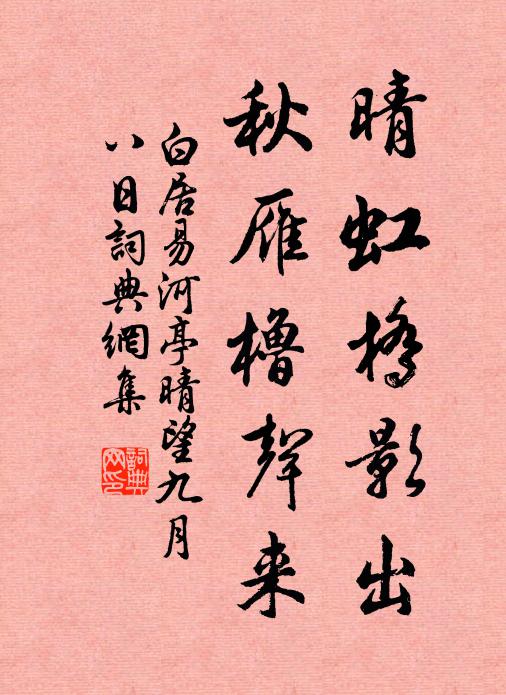 晴虹橋影出
秋雁櫓聲来
白居易河亭晴望九月
八日詞典網集
詞典
网印